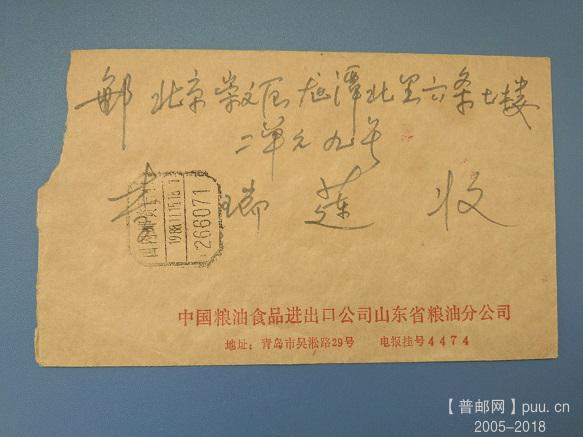 邮 北京崇文区龙潭北里六条七楼
二单元九号
林瑞莲 收
1988.11.15.16
266071
中国粮油食品进出口公司山东省粮油分公司
地址：青岛市吴淞路29号 电报挂号4474
【普邮网】puu.cn
2005-2018